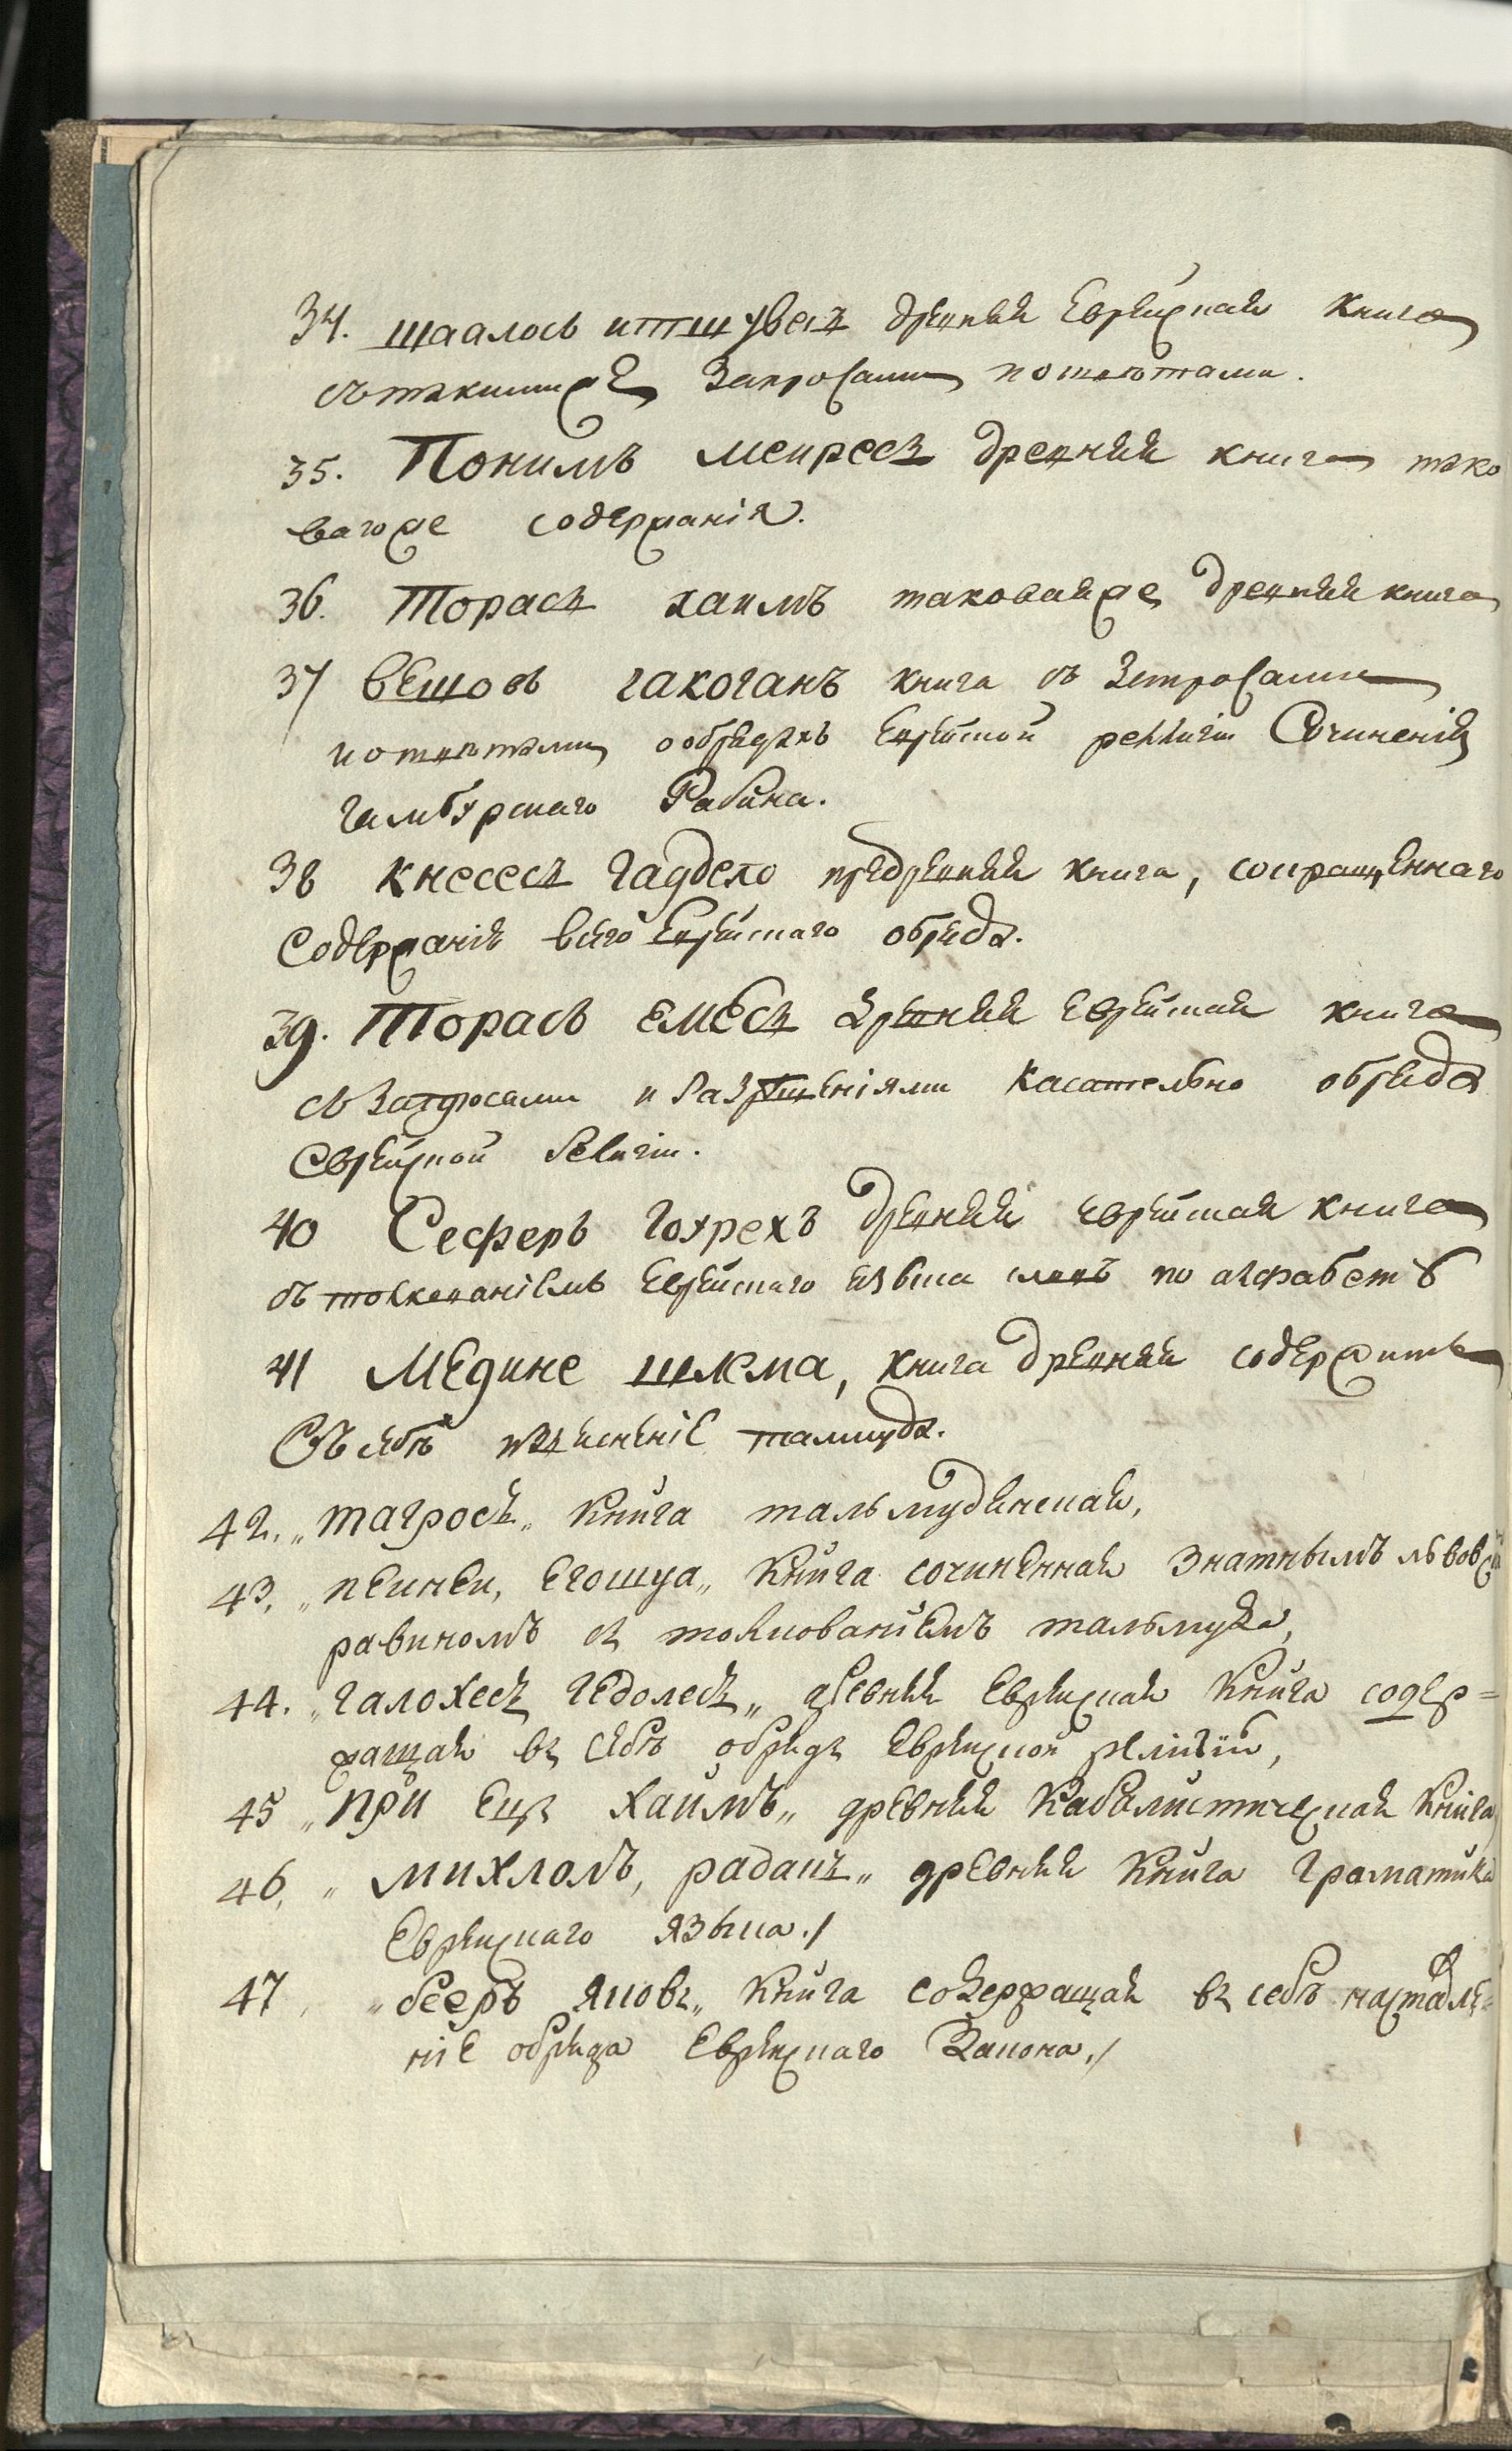 34. шаалось итшувесъ древняя Еврейская книга
съ такимиже Запросами и ответами.
35. Понимъ меиресъ древняя книга тако
вагоже содержанія.
36. Торасъ хаимъ таковаяже древняя книга
37 вешовъ гакоганъ книга съ Запросами
и ответами о обрядахъ Еврейской реллигіи Сочиненія
гамбурскаго Рабина.
38 Кнесесъ гагдело предревняя книга, сокращеннаго
Содержанія всего Еврейскаго обряда.
39. Торась емесъ древняя еврейская книга
съ Запросами и Разрешеніями касательно обряда
Еврейской Религіи.
40 Сеферъ гохрехъ древняя еврейская книга
съ толкованіемъ Еврейскаго языка словъ по алфабетѣ
41 Медине шлема, книга древняя содержитъ
Въ себѣ изъясненіе талмуда.
42. „тагросъ„ Книга тальмудинская,
43, „пеинеи, Егошуа„ Книга сочиненная Знатнымъ львовск
равиномъ съ толкованіемъ тальмуда,
44. „галохесъ гедолесъ„ древняя Еврейская Книга содер=
жащая въ себѣ обрядъ Еврейской религіи,
45 „при Ецъ Хаимъ„ древняя Кабалистическая Книга
46, „михлолъ, радакъ„ древняя Книга граматика
Еврейскаго языка./
47, „бееръ яковъ„ Книга содержащая въ себѣ наставле=
ніе обряда Еврейскаго Закона./